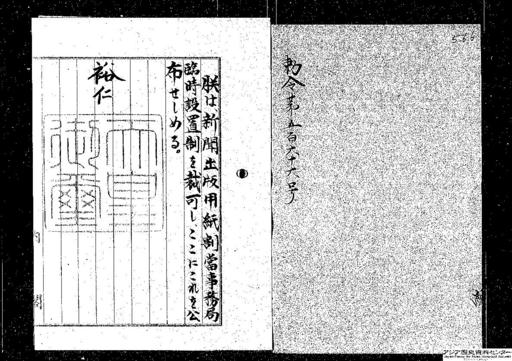 566
勅令第五百六十六号
朕は、新聞出版用紙割當事務局
臨時設置制を裁可し、ここにこれを公
布せしめる。
裕仁
天皇
御璽
内
閣
アジア歴史資料センター